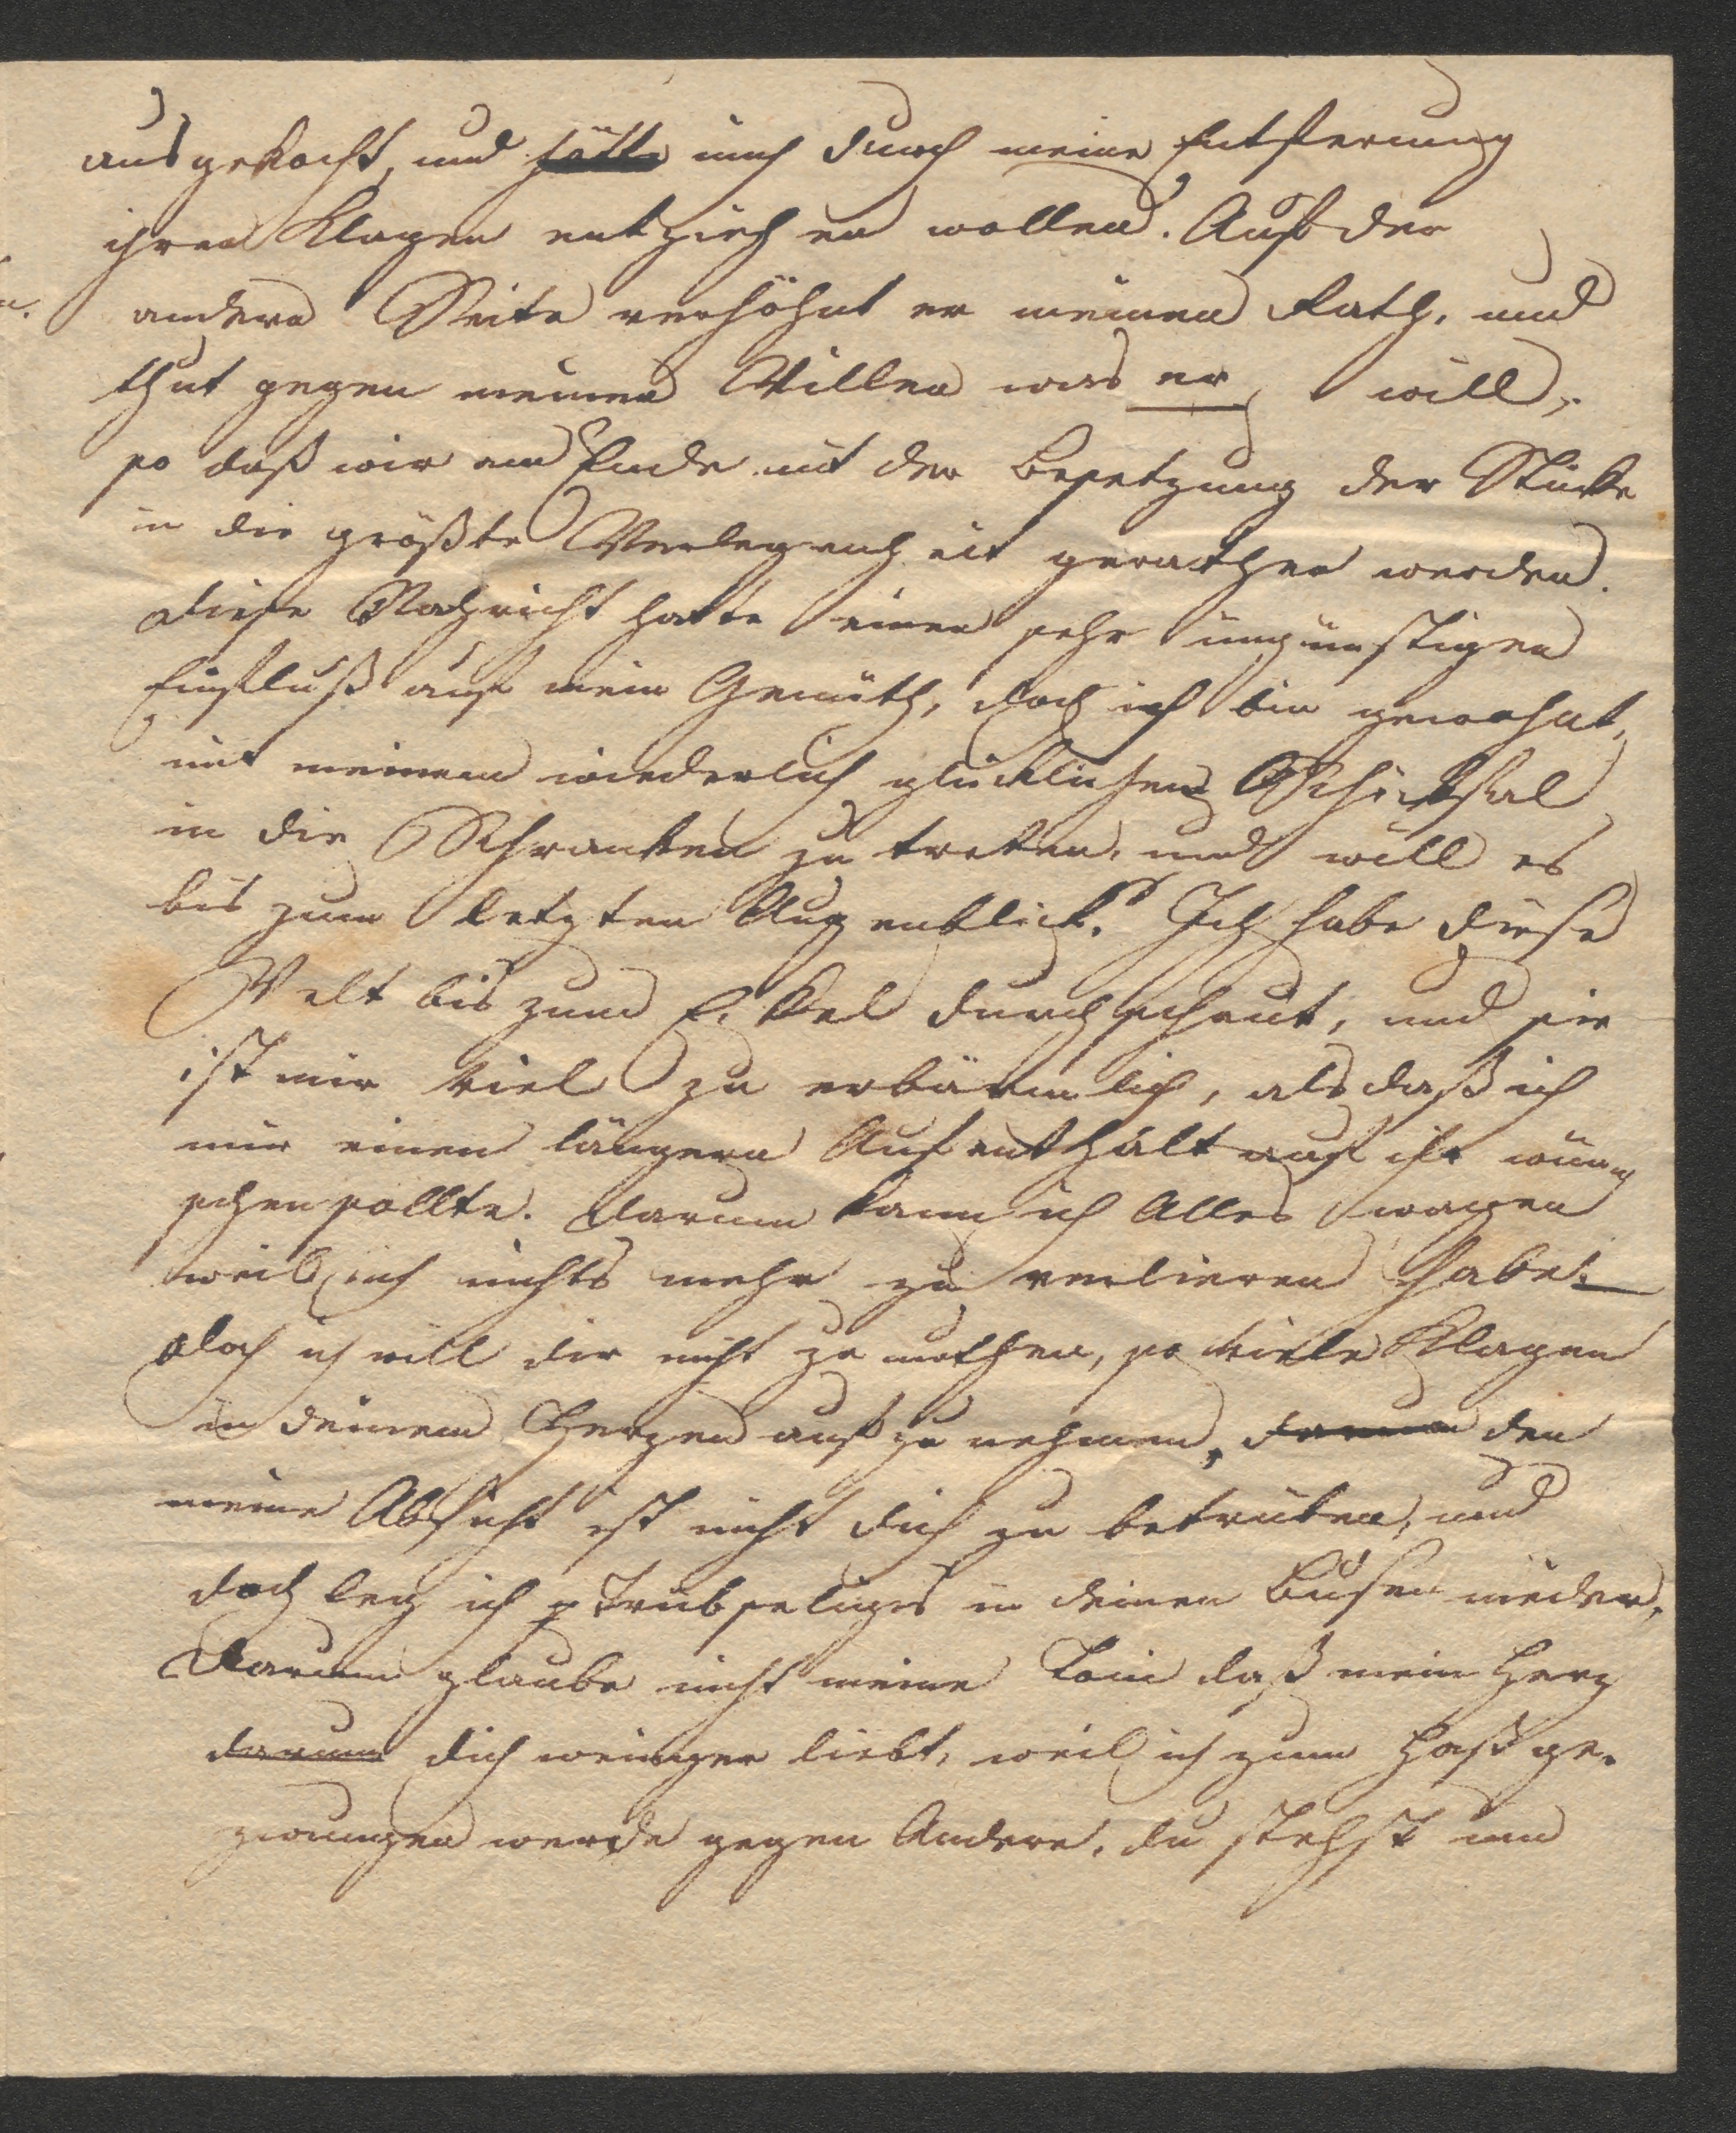 ausgekocht, und hätte mich durch meine Entfernung
ihren Klagen entziehen wollen. Auf der
andern Seite verhöhnt er meinen Rath, und
thut gegen meinen Willen was er will,
so daß wir am Ende mit der Besetzung der Stücke
in die größte Verlegenheit gerathen werden.
Diese Nachricht hatte einen sehr ungünstigen
Einfluß auf mein Gemüth, doch ich bin gewohnt,
mit meinem wiederlich glücklichen Schicksal
in die Schranken zu treten, und will es
bis zum letzten Augenblick. Ich habe diese
Welt bis zum Eckel durchschaut, und sie
ist mir viel zu erbärmlich, als daß ich
mir einen längern Aufenthalt auf ihr wün
schen sollte. Darum kann ich Alles wagen
weil ich nichts mehr zu verlieren habe.
Doch ich will dir nicht zu muthen, so viele Klagen
in deinem Herzen aufzunehmen, darum den
meine Absicht ist nicht dich zu betrüben, und
doch leg ich Trübseliges in deinen Busen nieder,
Darum glaube nicht meine Toni daß mein Herz
darum dich weniger liebt, weil ich zum Haß ge-
zwungen werde gegen Andere, du stehst nun